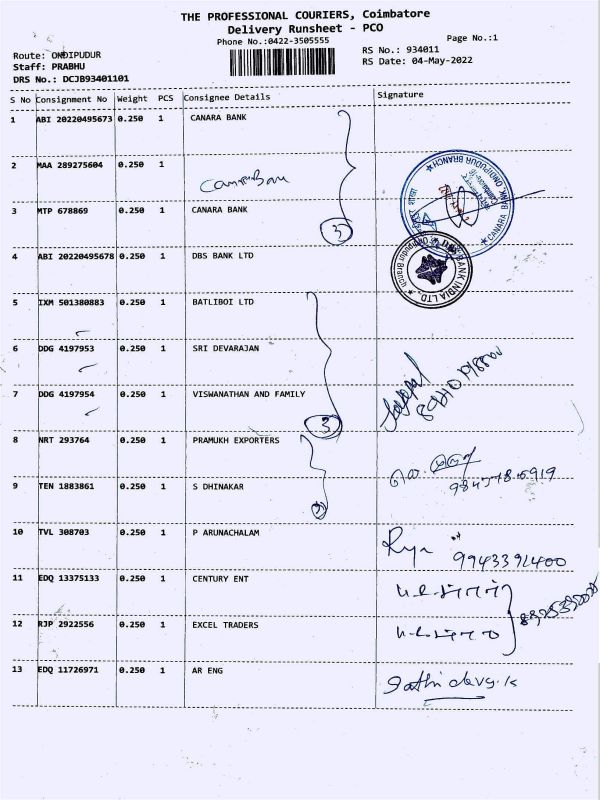 THE PROFESSIONAL COURIERS, Coimbatore
Delivery Runsheet - PCO
Phone No.:0422-3505555
Page No.:1
Route: ONDIPUDUR
Staff: PRABHU
DRS No.: DCJB93401101
RS No.: 934011
RS Date: 04-May-2022
S No Consignment No Weight PCS Consignee Details Signature
1 ABI 20220495673 0.250 1 CANARA BANK
2 MAA 289275604 0.250 1
3 MTP 678869 0.250 1 CANARA BANK
3
CANARA BANK, ONDIPUDUR BRANCH
4 ABI 20220495678 0.250 1 DBS BANK LTD
BANK INDIA LTD.
5 IXM 501380883 0.250 1 BATLIBOI LTD
6 DDG 4197953 0.250 1 SRI DEVARAJAN
7 DDG 4197954 0.250 1 VISWANATHAN AND FAMILY
3
8 NRT 293764 0.250 1 PRAMUKH EXPORTERS
9 TEN 1883861 0.250 1 S DHINAKAR
10 TVL 308703 0.250 1 P ARUNACHALAM
9943391400
11 EDQ 13375133 0.250 1 CENTURY ENT
12 RJP 2922556 0.250 1 EXCEL TRADERS
13 EDQ 11726971 0.250 1 AR ENG